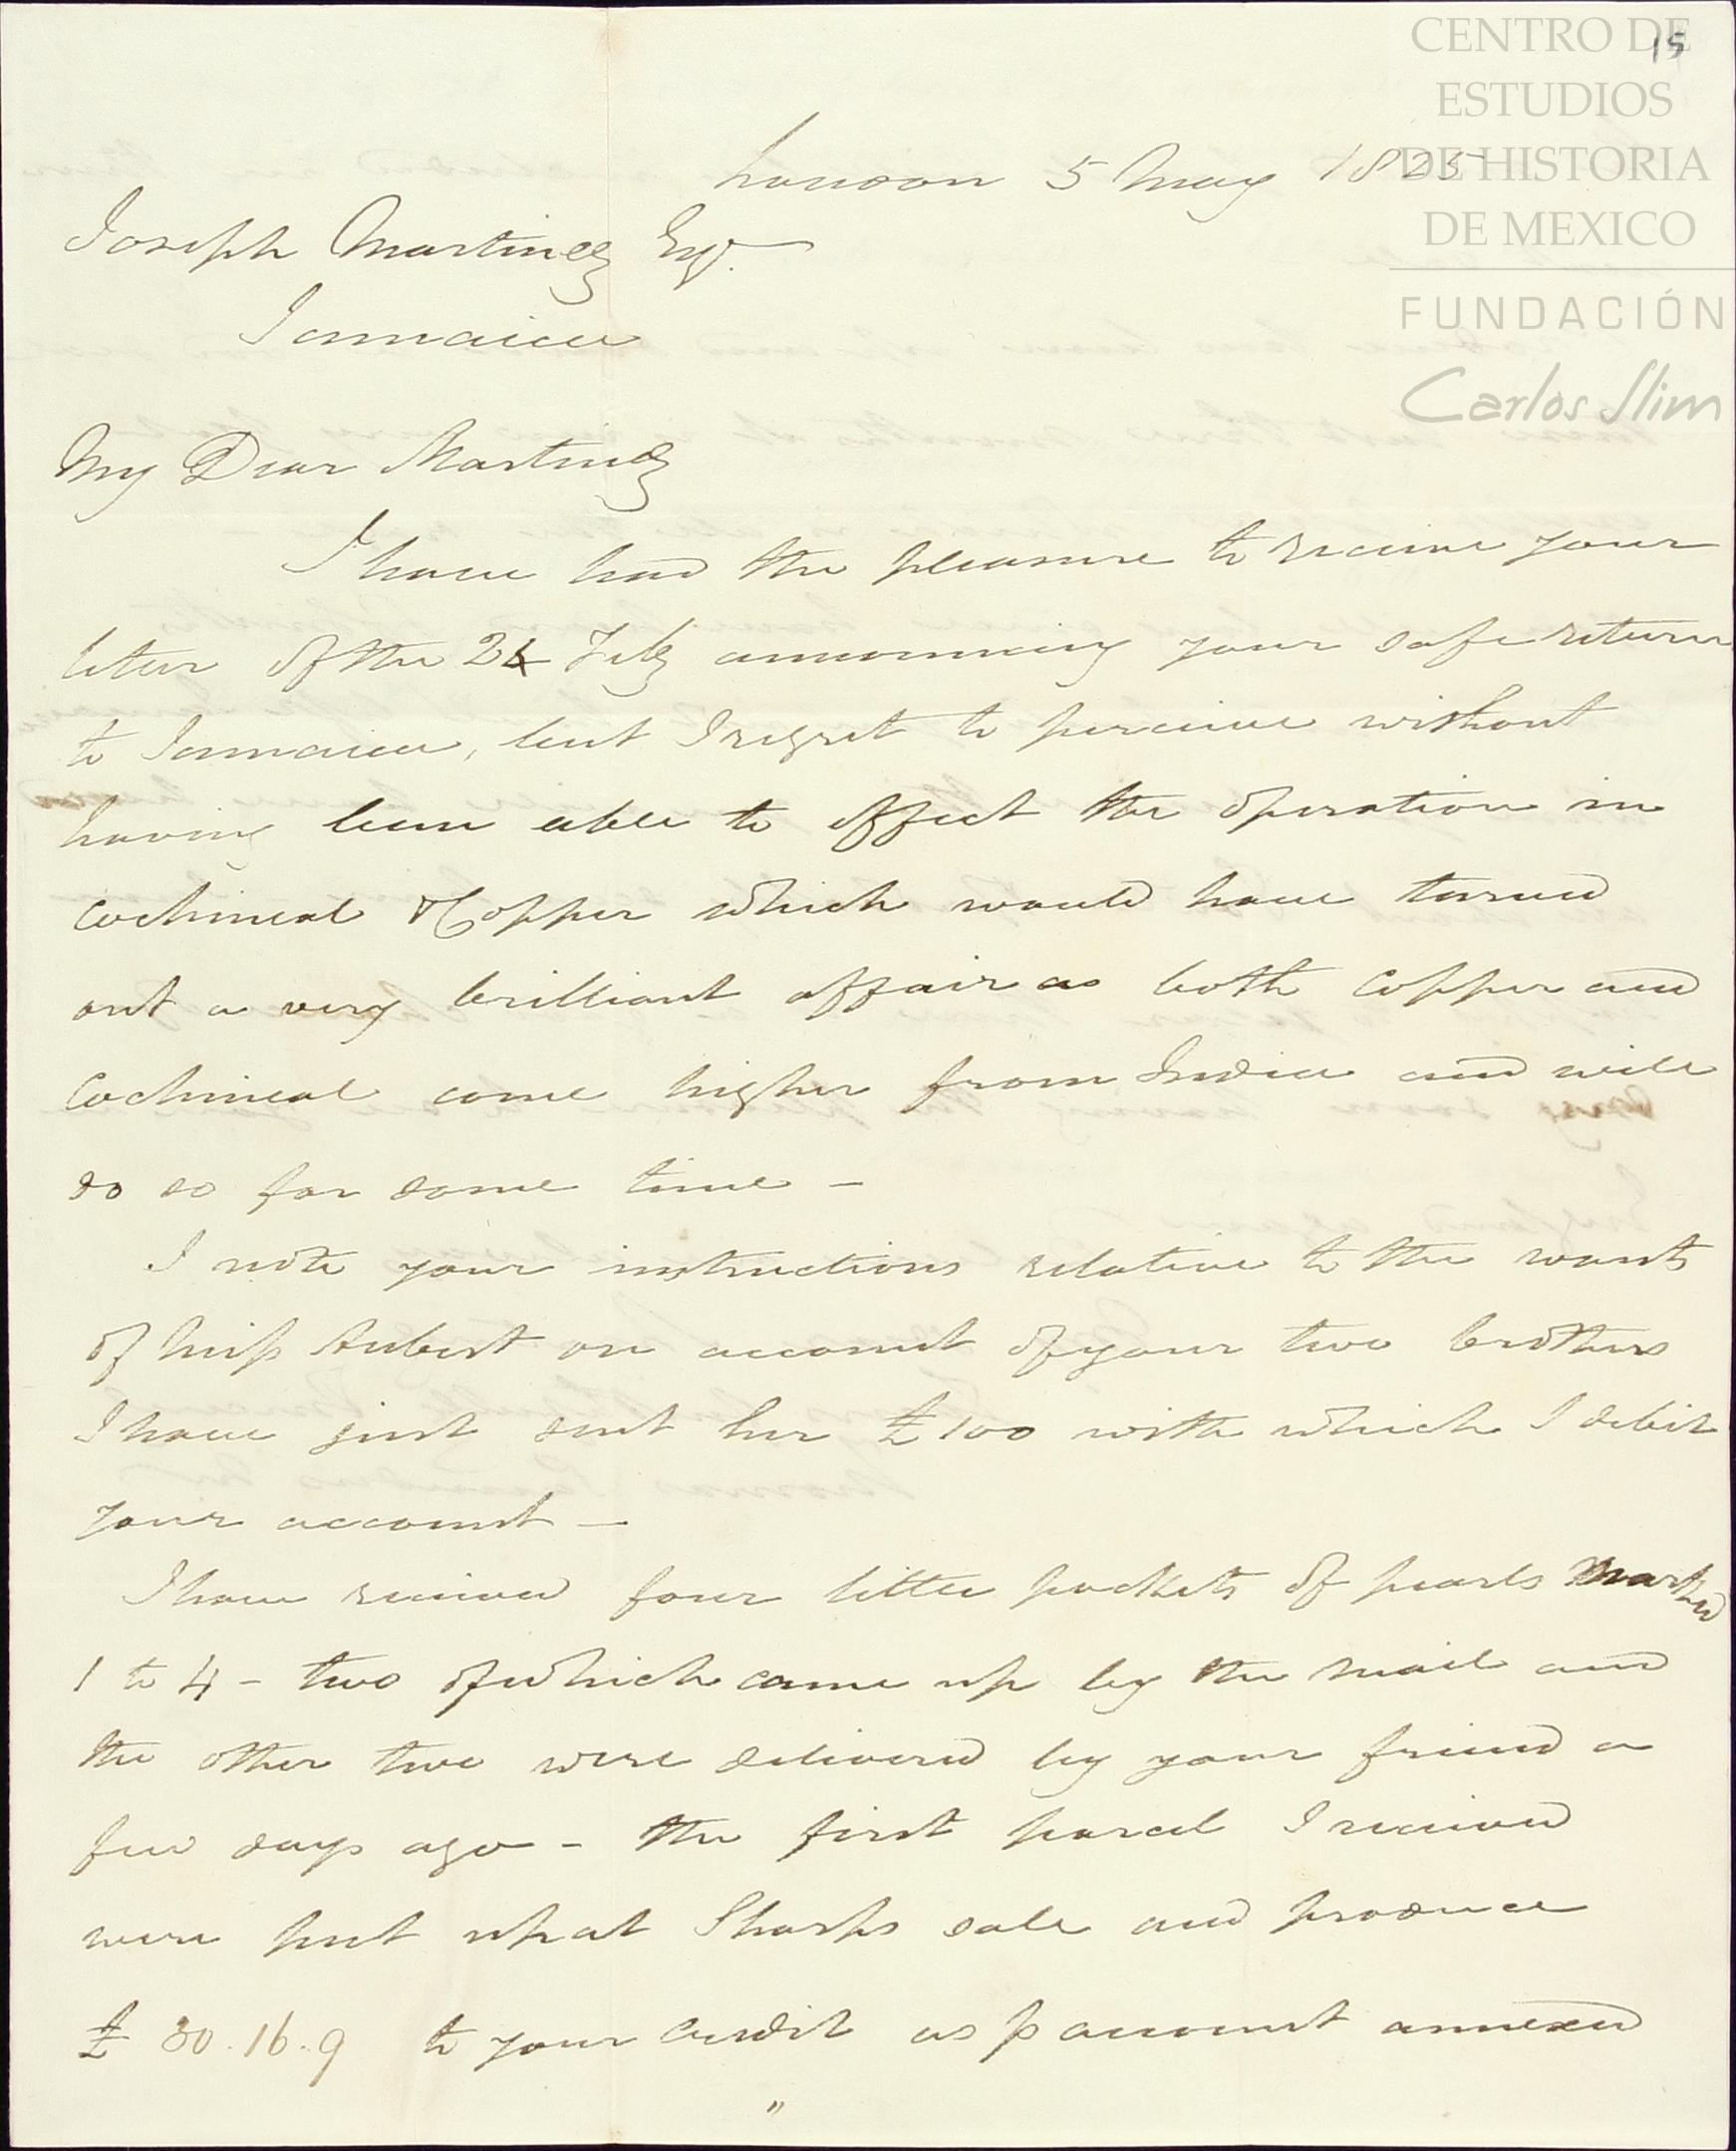 CENTRO DE
ESTUDIOS
DE HISTORIA
DE MEXICO
FUNDACIÓN
Carlos Slim
15
London 5 May 1825
Joseph Martinez Esqr.
Jamaica
My Dear Martinez
I have had the pleasure to receive your
letter of the 2 Feby announcing your safe return
to Jamaica, but I regret to perceive without
having been able to effect the operation in
Cochineal & Copper which would have turned
out a very brilliant affair as both Copper and
Cochineal come higher from India and will
do so for some time –
I note your instructions relative to the wants
of Miss Aubert on account of your two brothers
I have just sent her £100 with which I debit
your account –
I have received four little packets of pearls marked
1 to 4 – two of which came up by the mail and
the other two were delivered by your friend a
few days ago – the first parcel I received
were put up at Sharps sale and produce
£ 30.16.9 to your credit as p account annexed
"